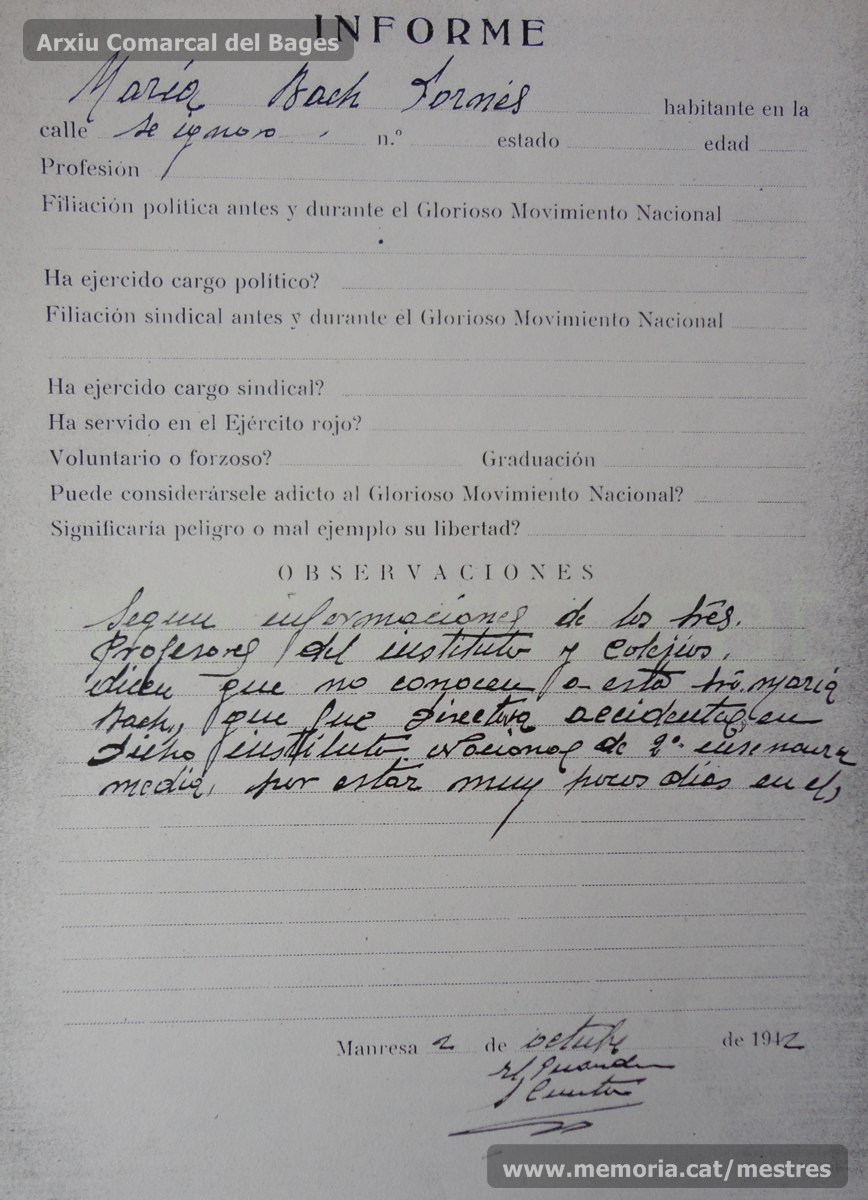 INFORME
Arxiu Comarcal del Bages
María Bach Fornés habitante en la
calle se ignora. n.º estado edad
Profesión
Filiación política antes y durante el Glorioso Movimiento Nacional
Ha ejercido cargo político?
Filiación sindical antes y durante el Glorioso Movimiento Nacional
Ha ejercido cargo sindical?
Ha servido en el Ejército rojo?
Voluntario o forzoso? Graduación
Puede considerársele adicto al Glorioso Movimiento Nacional?
Significaría peligro o mal ejemplo su libertad?
OBSERVACIONES
Segun informaciones de los
Profesores del instituto y Colejios,
dicen que no conocen a esta María
Bach, que fue Directora accidental, en
Dicho instituto Nacional de 2ª
media, por estar muy pocos dias en el,
Manresa 2 de octubre de 1942
www.memoria.cat/mestres